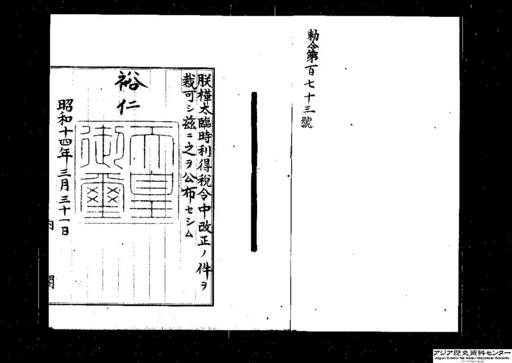 勅令第百七十三號
朕樺太臨時利得税令中改正ノ件ヲ
裁可シ茲ニ之ヲ公布セシム
裕仁
天皇御璽
昭和十四年三月三十一日
内閣
アジア歴史資料センター
Japan Center for Asian Historical Records